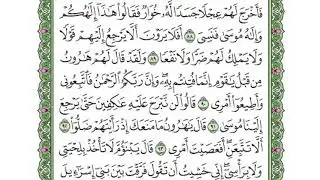 فَأَخْرَجَ لَهُمْ عِجْلًا جَسَدًا لَّهُ خُوَارٌ فَقَالُوا هَٰذَا إِلَٰهُكُمْ
وَإِلَٰهُ مُوسَىٰ فَنَسِيَ ٨٨ أَفَلَا يَرَوْنَ أَلَّا يَرْجِعُ إِلَيْهِمْ قَوْلًا
وَلَا يَمْلِكُ لَهُمْ ضَرًّا وَلَا نَفْعًا ٨٩ وَلَقَدْ قَالَ لَهُمْ هَٰرُونُ
مِن قَبْلُ يَٰقَوْمِ إِنَّمَا فُتِنتُم بِهِۦ وَإِنَّ رَبَّكُمُ الرَّحْمَٰنُ فَاتَّبِعُونِي
وَأَطِيعُوا أَمْرِي ٩٠ قَالُوا لَن نَّبْرَحَ عَلَيْهِ عَٰكِفِينَ حَتَّىٰ يَرْجِعَ
إِلَيْنَا مُوسَىٰ ٩١ قَالَ يَٰهَٰرُونُ مَا مَنَعَكَ إِذْ رَأَيْتَهُمْ ضَلُّوا ٩٢
أَلَّا تَتَّبِعَنِ أَفَعَصَيْتَ أَمْرِي ٩٣ قَالَ يَبْنَؤُمَّ لَا تَأْخُذْ بِلِحْيَتِي
وَلَا بِرَأْسِي إِنِّي خَشِيتُ أَن تَقُولَ فَرَّقْتَ بَيْنَ بَنِي إِسْرَٰٓءِيلَ